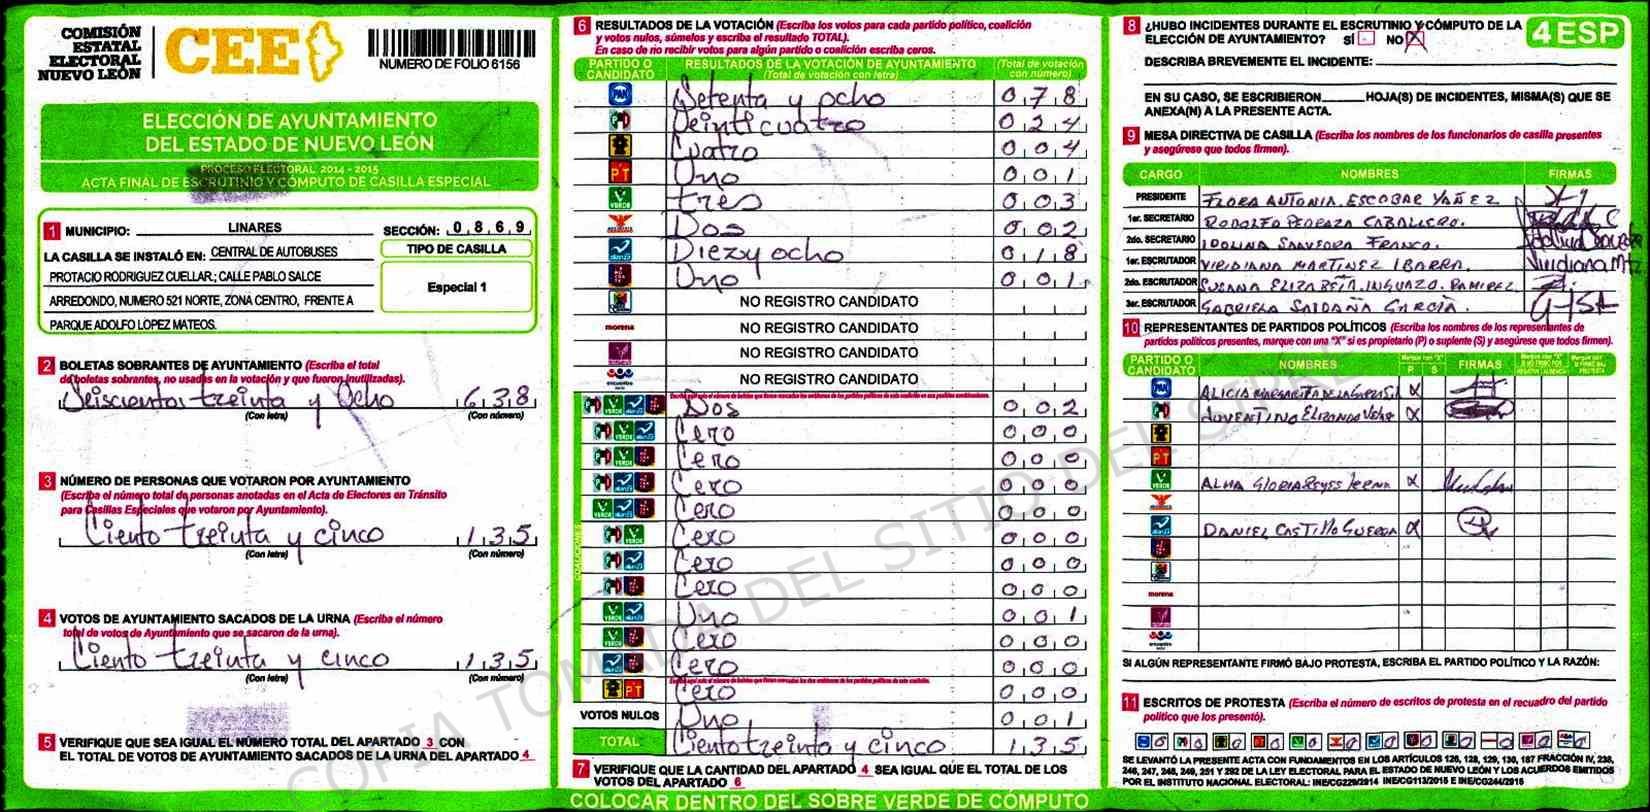 COMISIÓN
ESTATAL
ELECTORAL
NUEVO LEÓN
CEE
NUMERO DE FOLIO 6156
ELECCIÓN DE AYUNTAMIENTO
DEL ESTADO DE NUEVO LEÓN
PROCESO ELECTORAL 2014 - 2015
ACTA FINAL DE ESCRUTINIO Y CÓMPUTO DE CASILLA ESPECIAL
1 MUNICIPIO: LINARES SECCIÓN: 0869
LA CASILLA SE INSTALÓ EN: CENTRAL DE AUTOBUSES
PROTACIO RODRIGUEZ CUELLAR; CALLE PABLO SALCE
ARREDONDO, NUMERO 521 NORTE, ZONA CENTRO, FRENTE A
PARQUE ADOLFO LOPEZ MATEOS.
TIPO DE CASILLA
Especial 1
2 BOLETAS SOBRANTES DE AYUNTAMIENTO (Escriba el total
de boletas sobrantes, no usadas en la votación y que fueron inutilizadas).
Seiscientos treinta y Ocho 638
(Con letra) (Con número)
3 NÚMERO DE PERSONAS QUE VOTARON POR AYUNTAMIENTO
(Escriba el número total de personas anotadas en el Acta de Electores en Tránsito
para Casillas Especiales que votaron por Ayuntamiento).
Ciento treinta y cinco 135
(Con letra) (Con número)
4 VOTOS DE AYUNTAMIENTO SACADOS DE LA URNA (Escriba el número
total de votos de Ayuntamiento que se sacaron de la urna).
Ciento treinta y cinco 135
(Con letra) (Con número)
5 VERIFIQUE QUE SEA IGUAL EL NÚMERO TOTAL DEL APARTADO 3 CON
EL TOTAL DE VOTOS DE AYUNTAMIENTO SACADOS DE LA URNA DEL APARTADO 4
6 RESULTADOS DE LA VOTACIÓN (Escriba los votos para cada partido político, coalición
y votos nulos, súmelos y escriba el resultado TOTAL).
En caso de no recibir votos para algún partido o coalición escriba ceros.
PARTIDO O CANDIDATO RESULTADOS DE LA VOTACIÓN DE AYUNTAMIENTO (Total de votación con letra) (Total de votación con número)
PAN Setenta y ocho 078
Veinticuatro 024
Cuatro 004
PT Uno 001
VERDE Tres 003
Dos 002
Diezyocho 018
Uno 001
NO REGISTRO CANDIDATO
morena NO REGISTRO CANDIDATO
NO REGISTRO CANDIDATO
encuentro NO REGISTRO CANDIDATO
COALICIONES
VERDE Dos 002
VERDE Cero 000
VERDE Cero 000
Cero 000
VERDE Cero 000
VERDE Cero 000
Cero 000
Cero 000
VERDE Uno 001
VERDE Cero 000
Cero 000
PT Cero 000
VOTOS NULOS Uno 001
TOTAL Ciento treinta y cinco 135
7 VERIFIQUE QUE LA CANTIDAD DEL APARTADO 4 SEA IGUAL QUE EL TOTAL DE LOS
VOTOS DEL APARTADO 6
COLOCAR DENTRO DEL SOBRE VERDE DE CÓMPUTO
8 ¿HUBO INCIDENTES DURANTE EL ESCRUTINIO Y CÓMPUTO DE LA
ELECCIÓN DE AYUNTAMIENTO? SÍ NO X
4 ESP
DESCRIBA BREVEMENTE EL INCIDENTE:
EN SU CASO, SE ESCRIBIERON HOJA(S) DE INCIDENTES, MISMA(S) QUE SE
ANEXA(N) A LA PRESENTE ACTA.
9 MESA DIRECTIVA DE CASILLA (Escriba los nombres de los funcionarios de casilla presentes
y asegúrese que todos firmen).
CARGO NOMBRES FIRMAS
PRESIDENTE FLORA ANTONIA. ESCOBAR YAÑEZ
1er. SECRETARIO RODOLFO PEDRAZA CABALLERO.
2do. SECRETARIO IDOLINA SAAVEDRA FRANCO.
1er. ESCRUTADOR VIRIDIANA MARTINEZ IBARRA. Viridiana Mtz
2do. ESCRUTADOR SUSANA RAMIREZ
3er. ESCRUTADOR GABRIELA SALDAÑA GARCIA.
10 REPRESENTANTES DE PARTIDOS POLÍTICOS (Escriba los nombres de los representantes de
partidos políticos presentes, marque con una "X" si es propietario (P) o suplente (S) y asegúrese que todos firmen).
PARTIDO O CANDIDATO NOMBRES P S FIRMAS
PAN ALICIA MARGARITA X
JUVENTINO ELIZONDO X
PT
VERDE ALMA GLORIA REYES X
DANIEL CASTILLO GUERRA X
morena
encuentro
SI ALGÚN REPRESENTANTE FIRMÓ BAJO PROTESTA, ESCRIBA EL PARTIDO POLÍTICO Y LA RAZÓN:
11 ESCRITOS DE PROTESTA (Escriba el número de escritos de protesta en el recuadro del partido
político que los presentó).
0 0 0 0 0 0 0 0 0 0 0 0
SE LEVANTÓ LA PRESENTE ACTA CON FUNDAMENTOS EN LOS ARTÍCULOS 126, 128, 129, 130, 187 FRACCIÓN IV, 238,
246, 247, 248, 249, 251 Y 292 DE LA LEY ELECTORAL PARA EL ESTADO DE NUEVO LEÓN Y LOS ACUERDOS EMITIDOS
POR EL INSTITUTO NACIONAL ELECTORAL: INE/CG229/2014 INE/CG113/2015 E INE/CG244/2015
COPIA TOMADA DEL SITIO DEL SIPRE